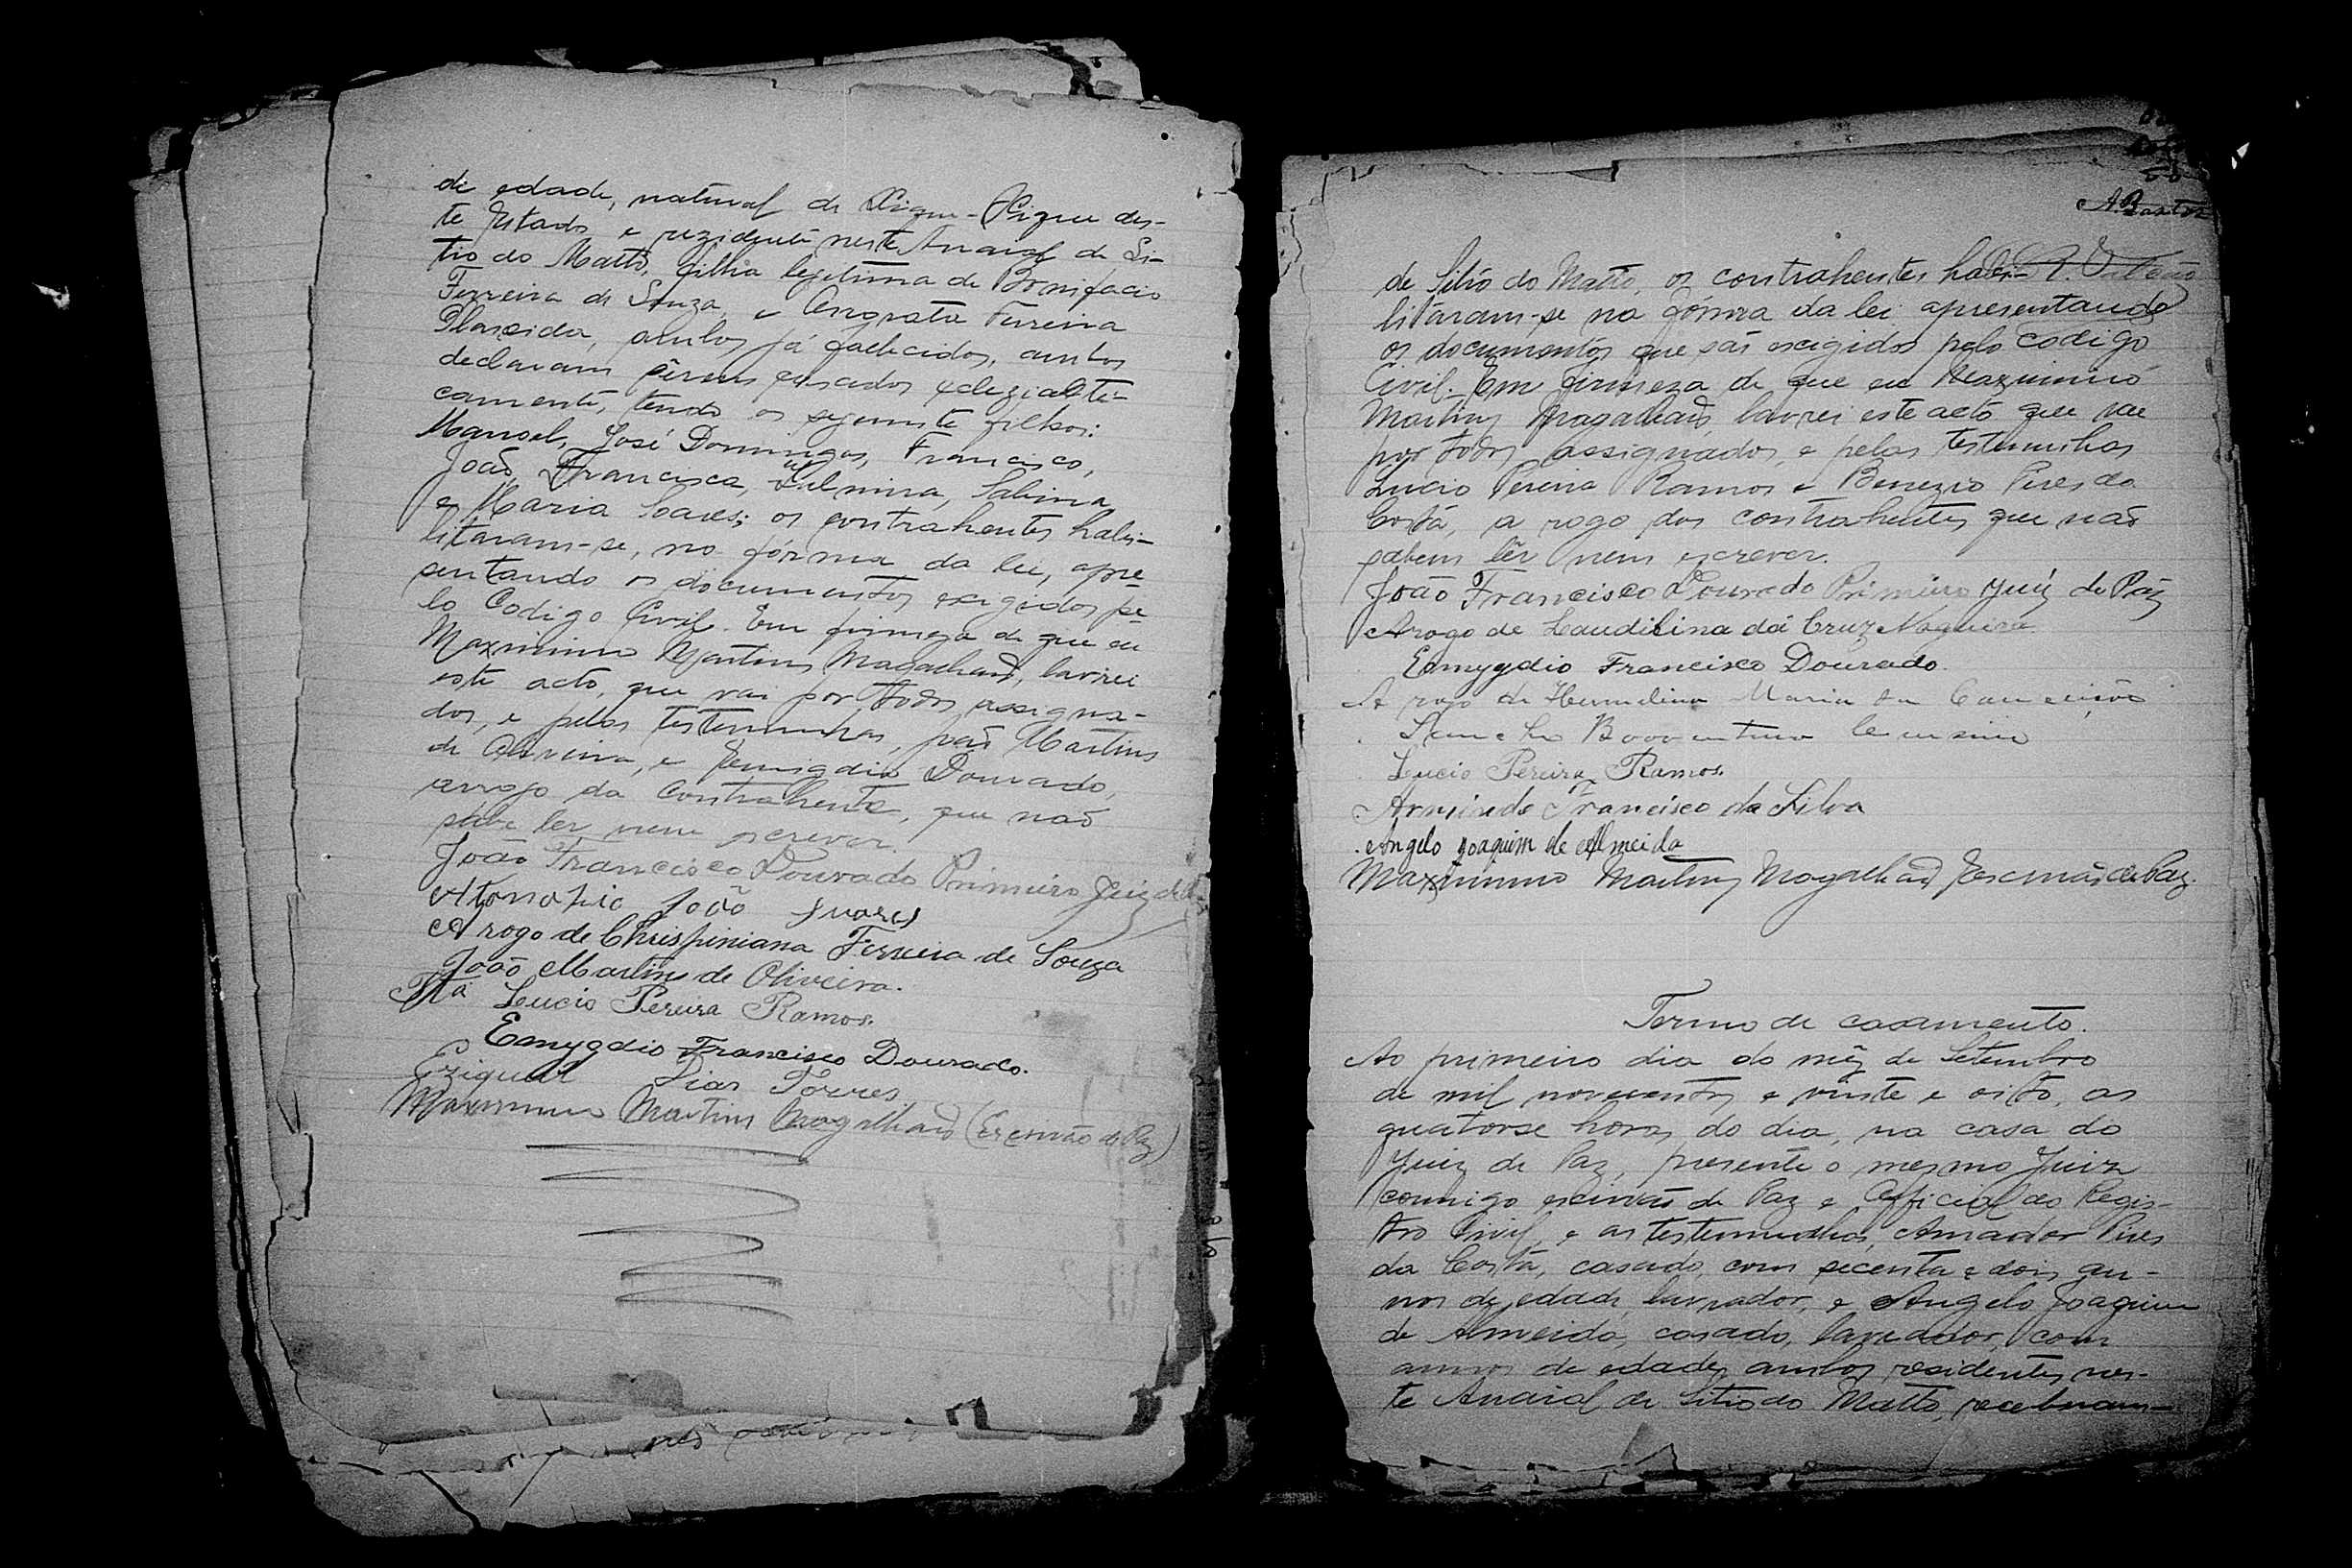 de edade, natural de Xique-Xique des-
te Estado, e rezidente neste Arraial de Si-
tio do Matto, filha legitima de Bonifacio
Ferreira de Souza, e Ferreira
Plascida, ambos já fallecidos, ambos
declaram sêrem casados
camente, tendo os segunste filhos:
Manoel, José Domingos, Francisco,
João, Francisca, Sabina
e Maria Soares; os contrahentes habi-
litaram-se, na fórma da lei, apre
sentando os documentos exigidos pe-
lo Codigo Civil. Em firmeza de que eu
Maximino Martins Magalhães, lavrei
este acto, que vai por todos assigna-
dos, e pelas testemunhas, João Martins
de Oliveira, e Emigdio Dourado,
arrogo da Contrahente, que não
sabe ler nem escrever.
João Francisco Dourado Primeiro Juiz de
João Suares
A rogo de Chrispiniana Ferreira de Souza
João Martins de Oliveira.
Lucio Pereira Ramos.
Esmygdio Francisco Dourado.
Eziquiel Dias Torres
Maximino Martins Magalhães (Escrivão de Paz)
de Sitio do Matto, os contrahentes habi-
litaram-se na fórma da lei apresentando
os documentos que sãs exigidos pelo Codigo
Civil. Em firmeza de que eu Maximino
Martins Magalhães, lavrei este acto que vae
por todos assignados, e pelas testemunhas
Lucio Pereira Ramos e Benezio Pires da
Costa, a rogo dos contrahentes que não
sabem lêr nem escrever.
João Francisco Dourado Primeiro Juiz de Páz
Arogo de Laudilina da Cruz Nogueira
Esmygdio Francisco Dourado.
A rogo de Hermelina Maria da Conceição
Lucio Pereira Ramos.
Armindo Francisco da Silva
Angelo Joaquim de Almeida
Maximino Martins Magalhães Escrivão de Paz.
Termo de casamento.
Ao primeiro dia do mêz de Setembro
de mil novecentos e vinte e oito, as
quatorse horas do dia, na casa do
Juiz de Paz, presente o mesmo Juiz
commigo escrivão de Paz e Official do Regis-
tro Civil, e as testemunhas, Amador Pires
da Costa, casado, com secenta e dois an-
nos de edade, lavrador, e Angelo Joaquim
de Almeida, casado, lavrador, com
annos de edade, ambos residentes nes-
te Arraial de Sitio do Matto, receberam-